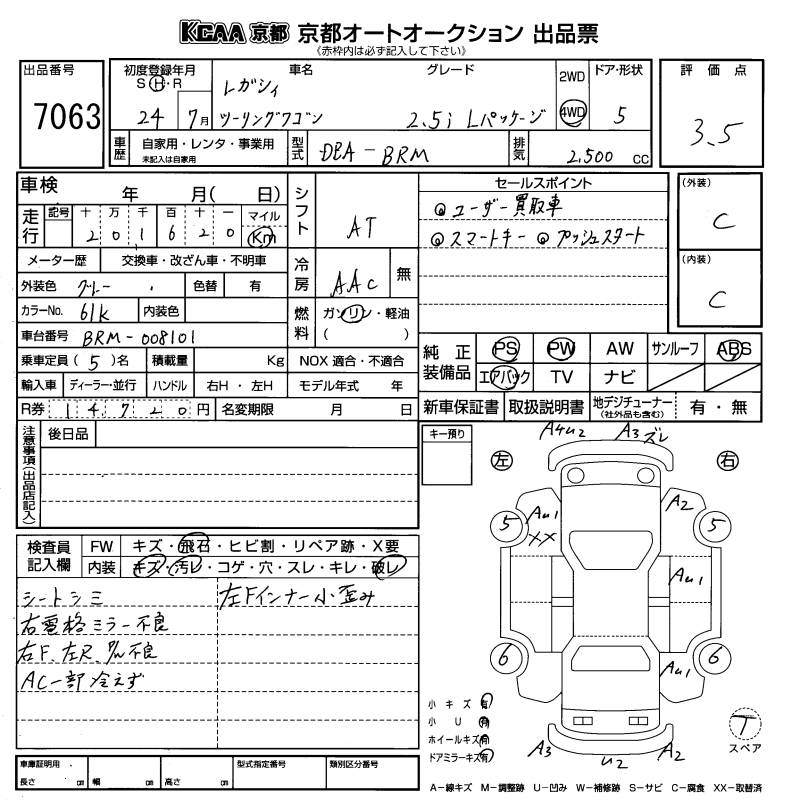 KCAA 京都 京都オートオークション 出品票
《赤枠内は必ず記入して下さい》
出品番号 7063
初度登録年月 S・H・R 24 7月
車名 レガシィ ツーリングワゴン
グレード 2.5i Lパッケージ
2WD 4WD
ドア・形状 5
評価点 3.5
車歴 自家用・レンタ・事業用 未記入は自家用
型式 DBA-BRM
排気 2,500 cc
車検 年 月( 日)
シフト AT
走行 記号 十 万 千 百 十 一 マイル Km
2 0 1 6 2 0
メーター歴 交換車・改ざん車・不明車
冷房 AAC 無
外装色 グレー 色替 有
カラーNo. 61k 内装色
燃料 ガソリン・軽油 ( )
車台番号 BRM-008101
乗車定員 (5)名 積載量 Kg NOX 適合・不適合
輸入車 ディーラー・並行 ハンドル 右H・左H モデル年式 年
R券 14720円 名変期限 月 日
セールスポイント
◎ユーザー買取車
◎スマートキー ◎プッシュスタート
(外装) C
(内装) C
純正装備品 PS PW AW サンルーフ ABS
エアバック TV ナビ
新車保証書 取扱説明書 地デジチューナー (社外品も含む) 有・無
注意事項(出品店記入) 後日品
キー預り
左 右
A4U2 A3 ズレ
AU1 XX A2
5 5
AU1
AU1
6 6
A3 U2 A2
検査員記入欄 FW キズ・飛石・ヒビ割・リペア跡・X要
内装 キズ・汚レ・コゲ・穴・スレ・キレ・破レ
シートシミ 左Fインナー小歪み
右電格ミラー不良
AC一部冷えず
小キズ 有
小U 有
ホイールキズ 有
ドアミラーキズ 有
T スペア
車庫証明用 長さ cm 幅 cm 高さ cm 型式指定番号 類別区分番号
A-線キズ M-調整跡 U-凹み W-補修跡 S-サビ C-腐食 XX-取替済